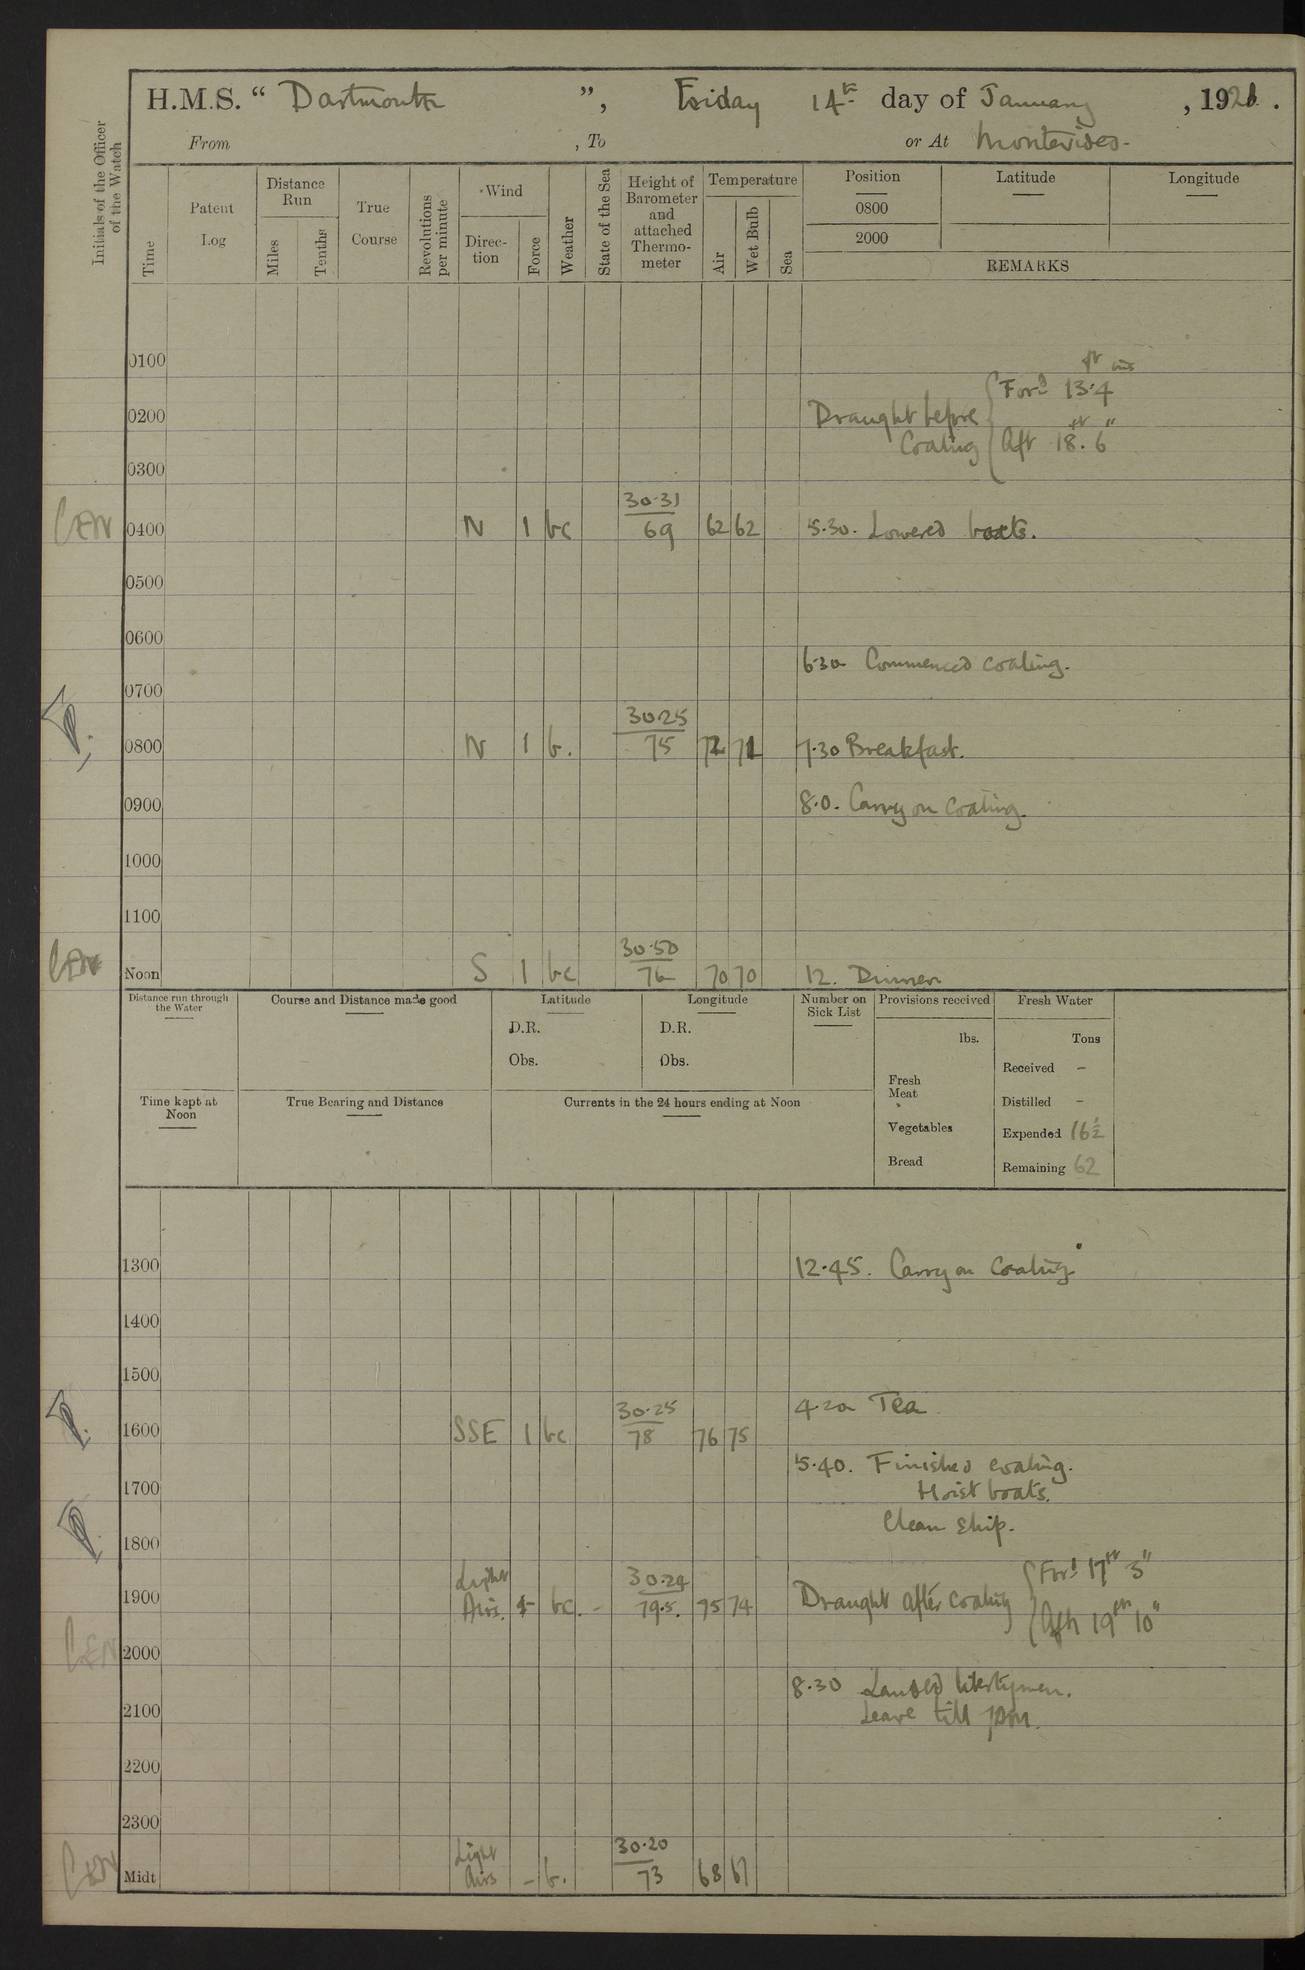 H.M.S. “ Dartmouth ”, Friday 14th day of January , 1921 .
From , To or At Montevideo -
Initials of the Officer of the Watch
Time
Patent Log
Distance Run
Miles
Tenths
True Course
Revolutions per minute
Wind
Direc- tion
Force
Weather
State of the Sea
Height of Barometer and attached Thermo- meter
Temperature
Air
Wet Bulb
Sea
Position Latitude Longitude
0800
2000
REMARKS
0100
ft ins
Ford 13.4
0200 Draught before
Coaling Aft 18 ft. 6"
0300
30.31
CEN 0400 N 1 bc 69 62 62 5.30. Lowered boats.
0500
0600
6.30 Commenced coaling.
0700
30.25
0800 N 1 b. 75 72 71 7.30 Breakfast.
0900 8.0. Carry on coaling.
1000
1100
30.50
CEN Noon S 1 bc 76 70 70 12. Dinner
Distance run through the Water
Course and Distance made good
Latitude
D.R.
Obs.
Longitude
D.R.
Obs.
Number on Sick List
Provisions received
lbs.
Fresh Meat
Vegetables
Bread
Fresh Water
Tons
Received -
Distilled -
Expended 16½
Remaining 62
Time kept at Noon
True Bearing and Distance
Currents in the 24 hours ending at Noon
1300 12.45. Carry on Coaling
1400
1500
30.25 4.20 Tea
1600 SSE 1 bc 78 76 75
5.40. Finished coaling.
1700 Hoist boats.
Clean Ship.
1800
Light 30.24 Ford 17ft 3"
1900 Airs. - bc. - 79.5. 75 74 Draught after coaling
Aft 19ft 10"
CEN 2000
8.30 Landed libertymen.
2100 Leave till
2200
2300
Light 30.20
CEN Midt Airs - b. 73 68 67